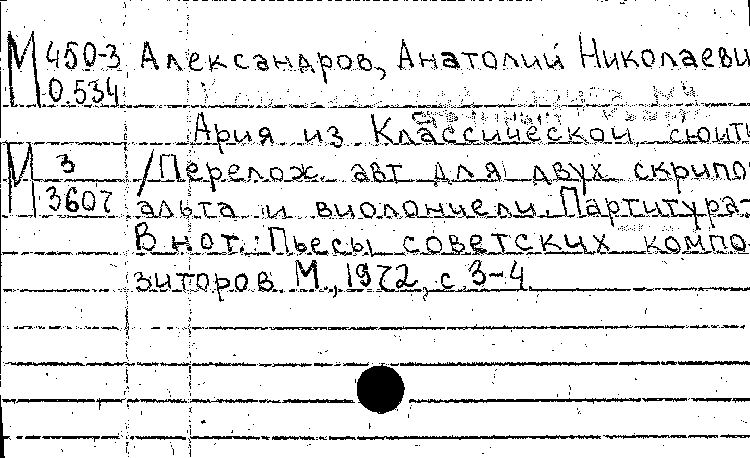 М 450-3 Александров, Анатолий Николаеви
0.534
Ария из Классической сюит
М 3 /Перелож. авт для двух скрипо
3607 альта и виолончели. Партитура.
В нот.: Пьесы советских компо-
зиторов. М., 1972, с. 3-4.